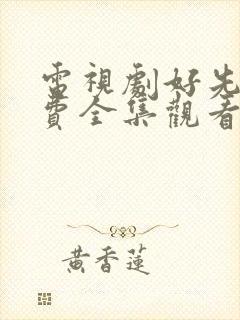 電視劇好先
費全集觀看
黃香蓮